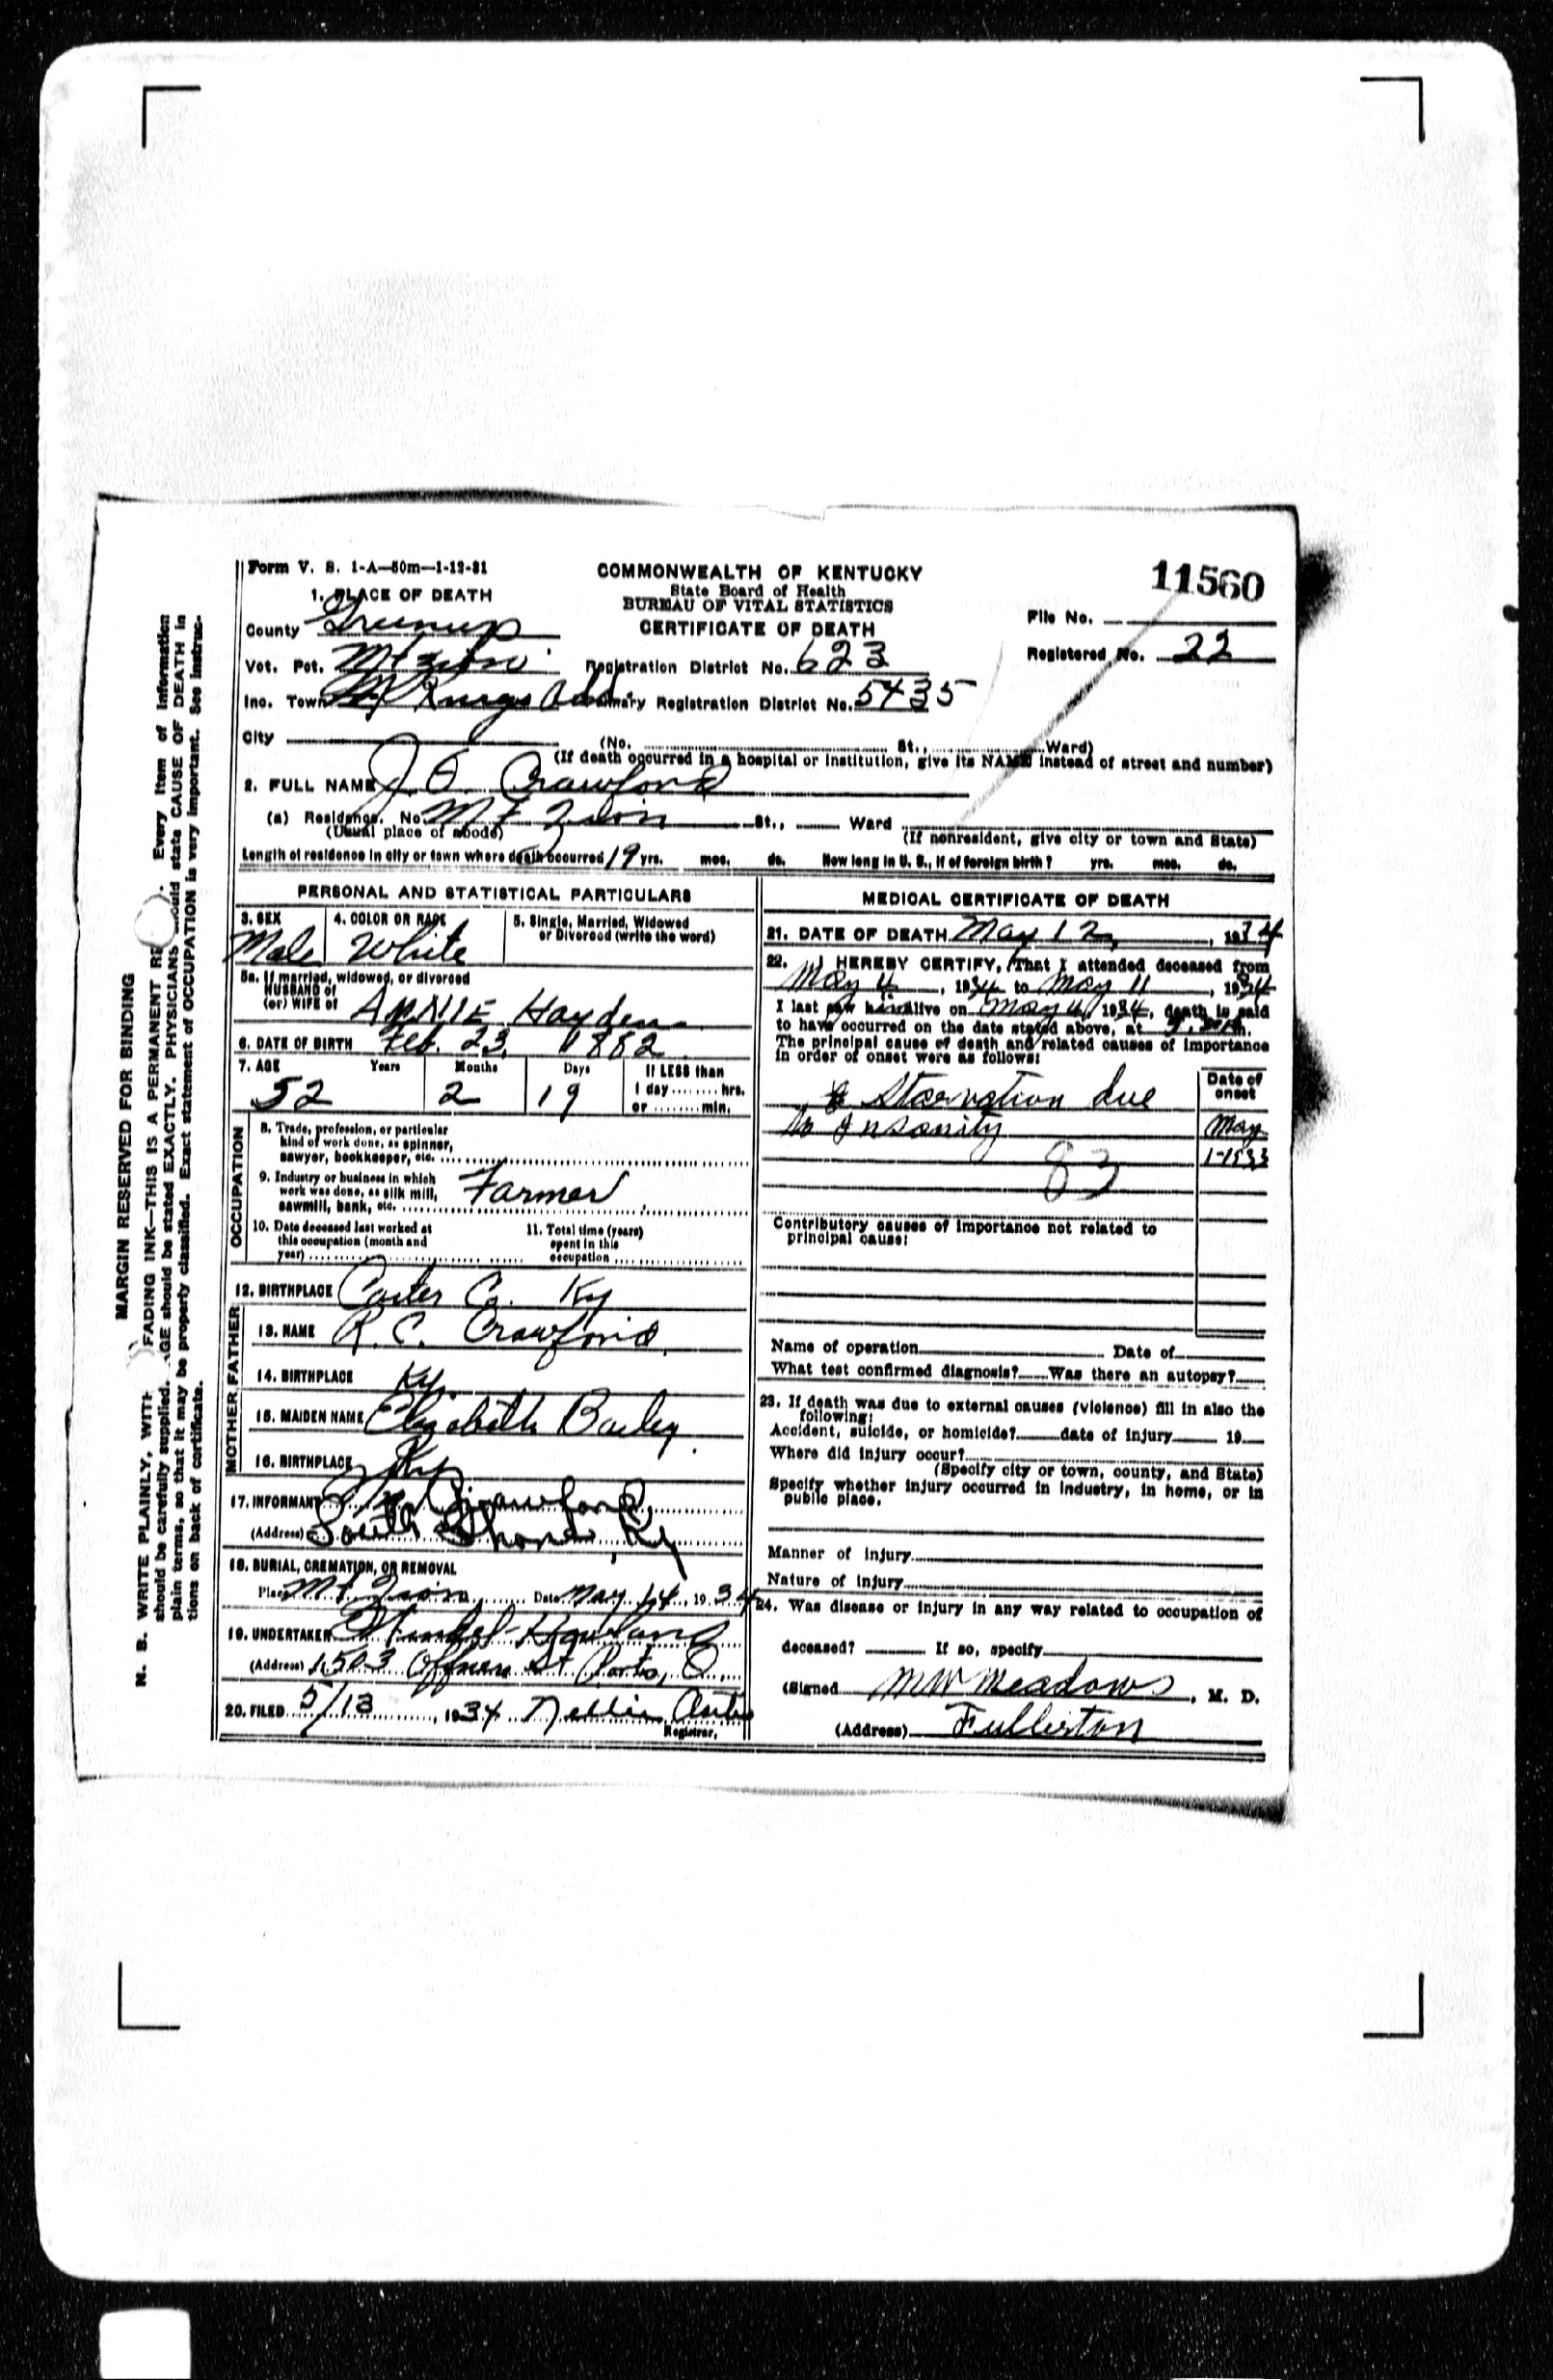 Form V. S. 1-A—50m—1-12-31
COMMONWEALTH OF KENTUCKY
State Board of Health
BUREAU OF VITAL STATISTICS
CERTIFICATE OF DEATH
11560
File No.
Registered No. 22
1. PLACE OF DEATH
County Greenup
Vot. Pct. Mt Zion Registration District No. 623
Inc. Town Primary Registration District No. 5435
City (No. St., Ward)
(If death occurred in a hospital or institution, give its NAME instead of street and number)
2. FULL NAME J. O. Crawford
(a) Residence. No. Mt Zion St., Ward
(Usual place of abode) (If nonresident, give city or town and State)
Length of residence in city or town where death occurred 19 yrs. mos. ds. How long in U. S., if of foreign birth? yrs. mos. ds.
PERSONAL AND STATISTICAL PARTICULARS
3. SEX 4. COLOR OR RACE 5. Single, Married, Widowed
or Divorced (write the word)
Male White
5a. If married, widowed, or divorced
HUSBAND of
(or) WIFE of Annie Hayden
6. DATE OF BIRTH Feb. 23, 1882
7. AGE Years Months Days If LESS than
52 2 19 1 day hrs.
or min.
OCCUPATION
8. Trade, profession, or particular
kind of work done, as spinner,
sawyer, bookkeeper, etc.
9. Industry or business in which
work was done, as silk mill, Farmer
sawmill, bank, etc.
10. Date deceased last worked at 11. Total time (years)
this occupation (month and spent in this
year) occupation
12. BIRTHPLACE Carter Co. Ky
FATHER
13. NAME R. C. Crawford
14. BIRTHPLACE Ky.
MOTHER
15. MAIDEN NAME Elizabeth Bailey
16. BIRTHPLACE Ky
17. INFORMANT Crawford
(Address) South Shore, Ky
18. BURIAL, CREMATION, OR REMOVAL
Place Mt. Zion Date May 14, 1934
19. UNDERTAKER
(Address) 1503 Offnere St Ports, O.
20. FILED 5/13, 1934 Nellie
Registrar.
MEDICAL CERTIFICATE OF DEATH
21. DATE OF DEATH May 12, 1934
22. I HEREBY CERTIFY, That I attended deceased from
May 4, 1934 to May 11, 1934
I last saw him alive on May 11, 1934, death is said
to have occurred on the date stated above, at m.
The principal cause of death and related causes of importance
in order of onset were as follows:
Date of
onset
Starvation due
to Insanity May
1-1933
83
Contributory causes of importance not related to
principal cause:
Name of operation Date of
What test confirmed diagnosis? Was there an autopsy?
23. If death was due to external causes (violence) fill in also the
following:
Accident, suicide, or homicide? date of injury 19
Where did injury occur?
(Specify city or town, county, and State)
Specify whether injury occurred in industry, in home, or in
public place.
Manner of injury
Nature of injury
24. Was disease or injury in any way related to occupation of
deceased? If so, specify
(Signed MW Meadows, M. D.
(Address) Fullerton
MARGIN RESERVED FOR BINDING
N. B. WRITE PLAINLY, WITH FADING INK—THIS IS A PERMANENT RE. Every item of information
should be carefully supplied. AGE should be stated EXACTLY. PHYSICIANS should state CAUSE OF DEATH in
plain terms, so that it may be properly classified. Exact statement of OCCUPATION is very important. See instruc-
tions on back of certificate.